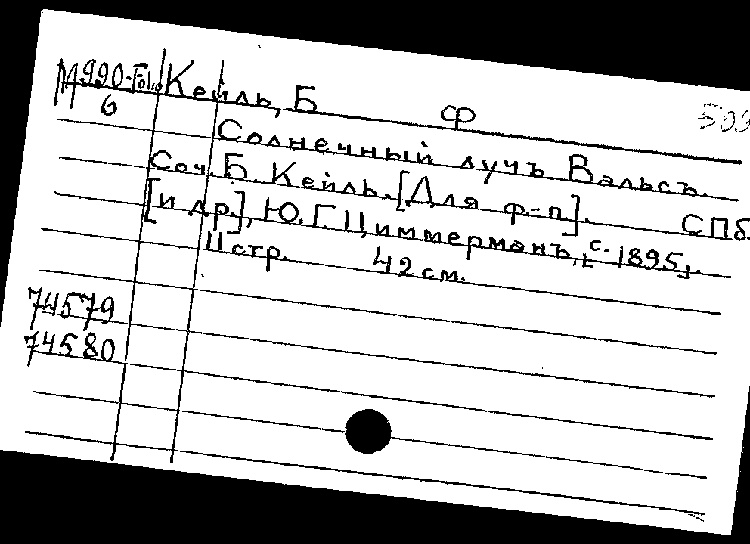 М990-Fol. Кейль, Б ф 503
6
Солнечный лучъ Вальсъ.
Соч. Б. Кейль. [Для ф-п]. СПб.
[и др.], Ю. Г. Циммерманъ, [с. 1895].
11 стр. 42 см.
74579
74580